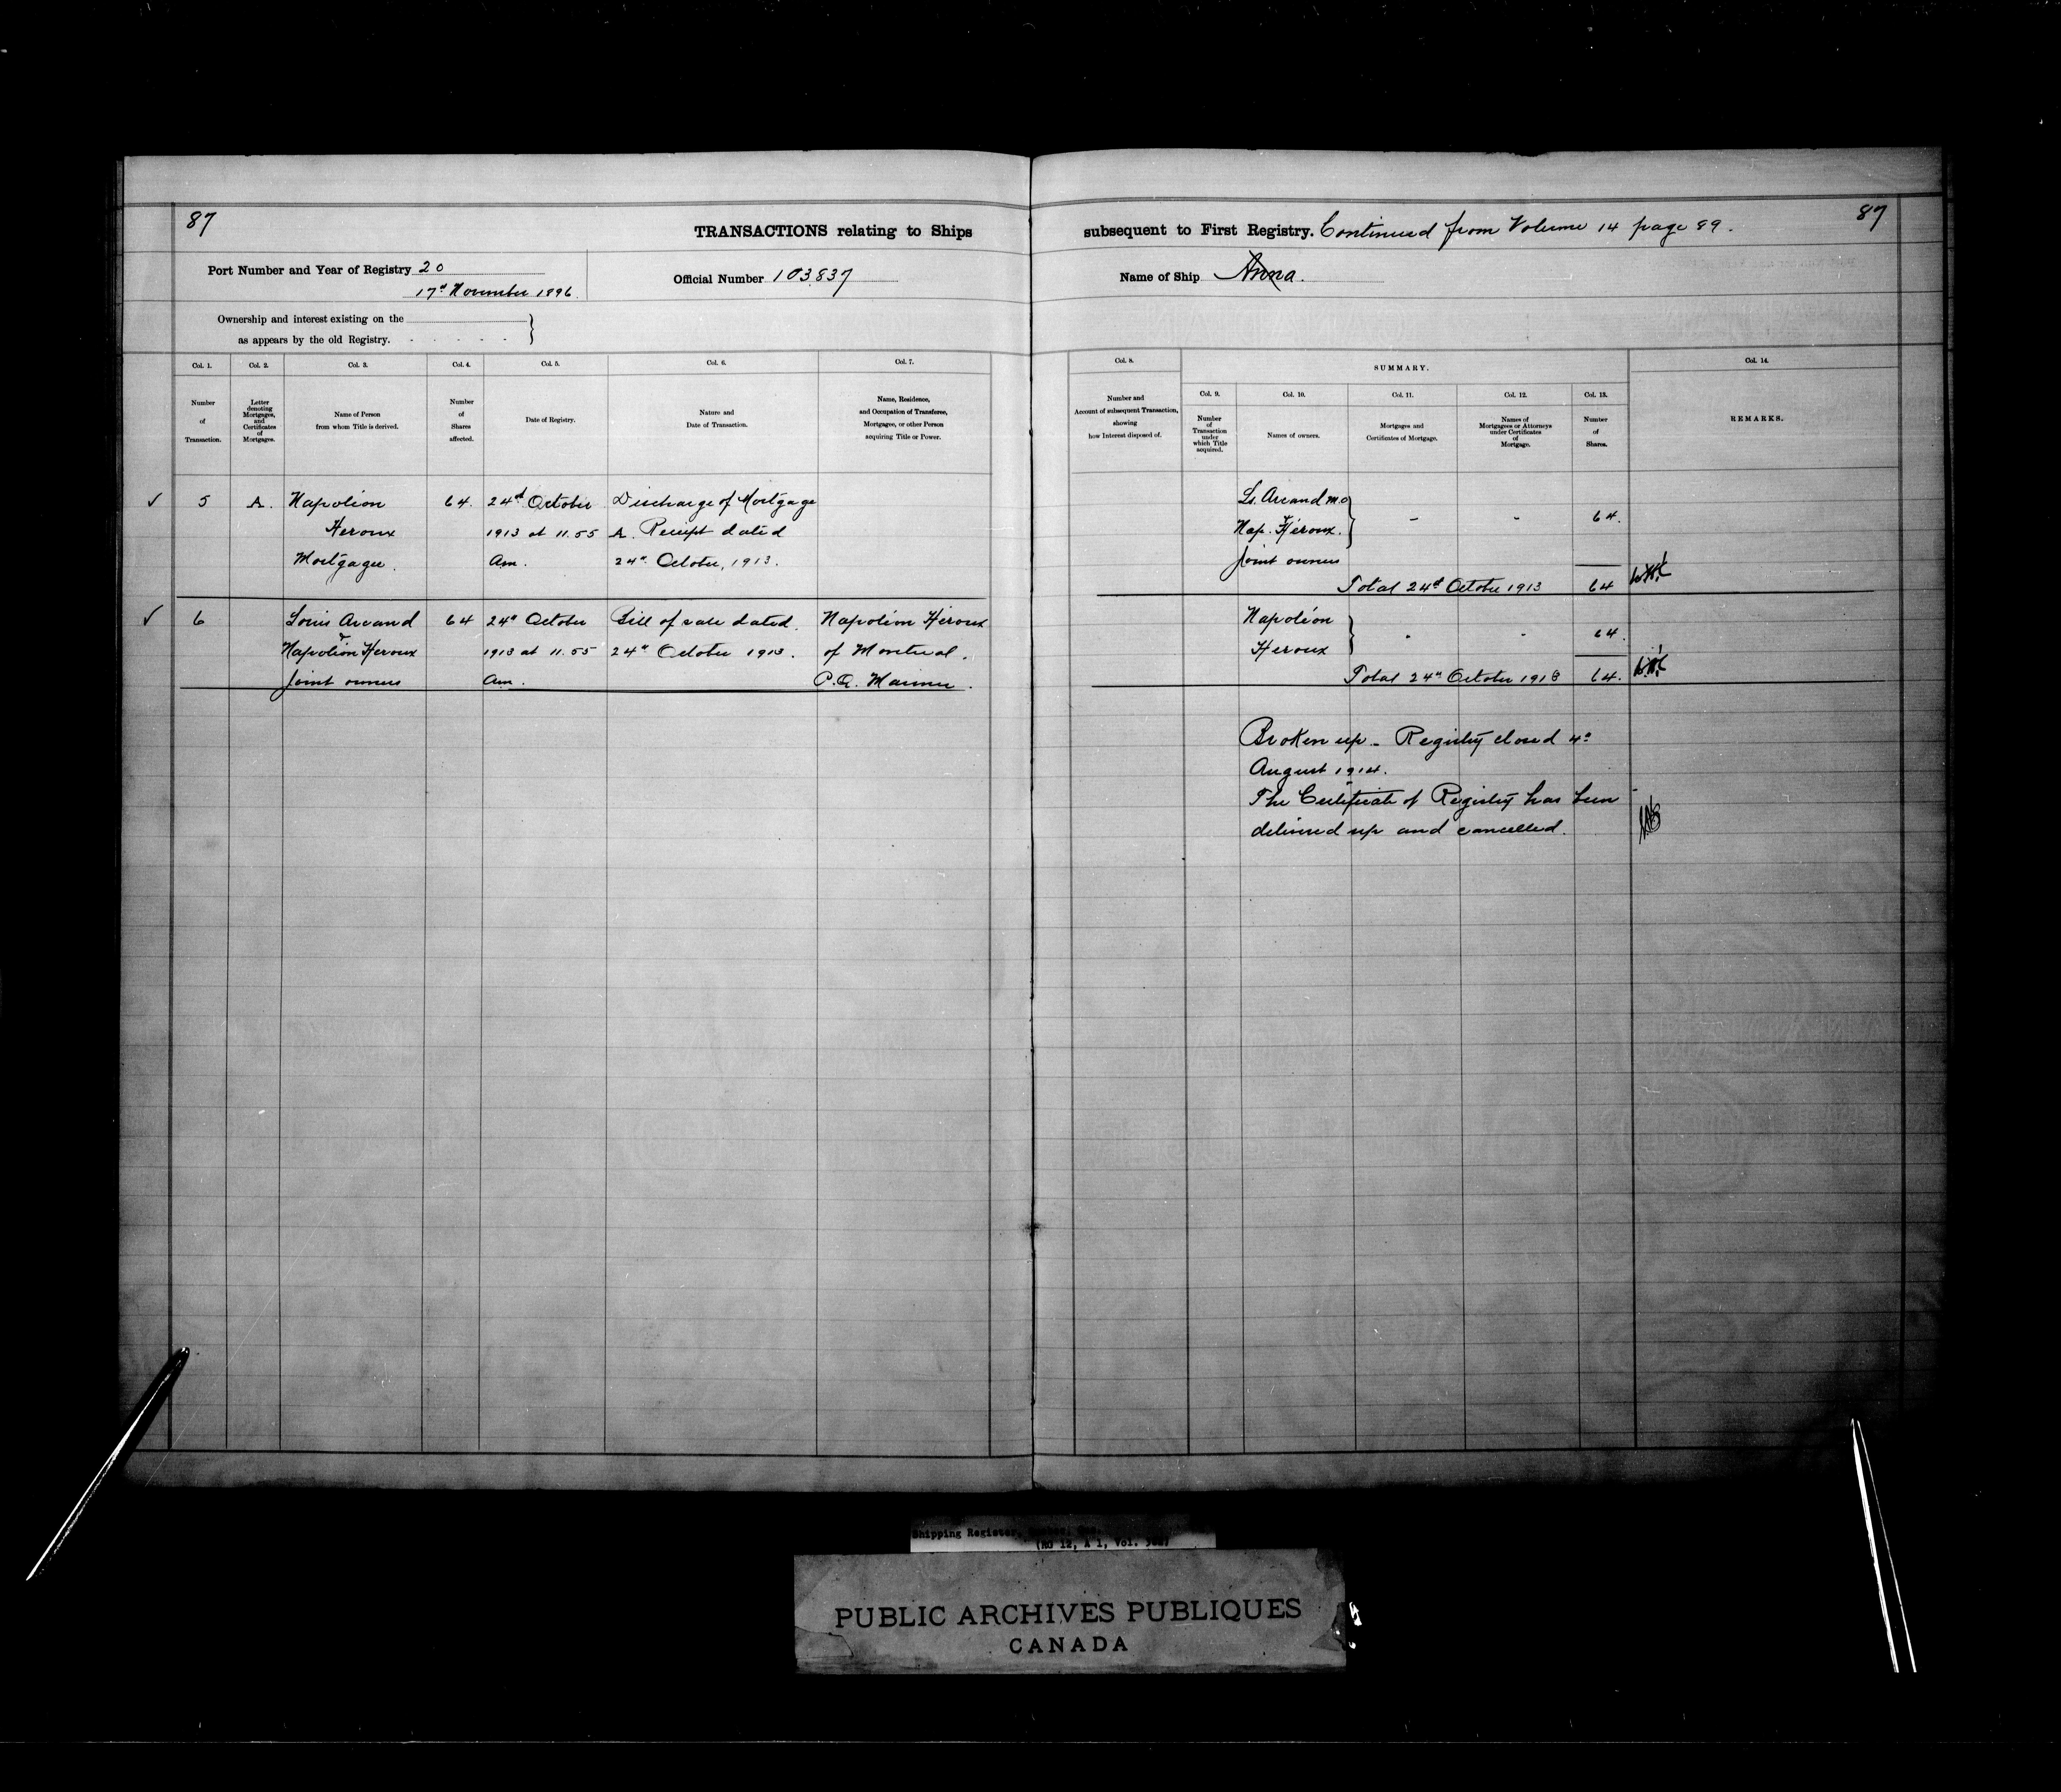 87
87
TRANSACTIONS relating to Ships subsequent to First Registry. Continued from Volume 14 page 89.
Port Number and Year of Registry 20
17d November 1896.
Official Number 103.837
Name of Ship Anna.
Ownership and interest existing on the
as appears by the old Registry.
Col. 1.
Number
of
Transaction.
Col. 2.
Letter
denoting
Mortgages,
and
Certificates
of
Mortgages.
Col. 3.
Name of Person
from whom Title is derived.
Col. 4.
Number
of
Shares
affected.
Col. 5.
Date of Registry.
Col. 6.
Nature and
Date of Transaction.
Col. 7.
Name, Residence,
and Occupation of Transferee,
Mortgagee, or other Person
acquiring Title or Power.
Col. 8.
Number and
Account of subsequent Transaction,
showing
how Interest disposed of.
SUMMARY.
Col. 9.
Number
of
Transaction
under
which Title
acquired.
Col. 10.
Names of owners.
Col. 11.
Mortgages and
Certificates of Mortgage.
Col. 12.
Names of
Mortgagees or Attorneys
under Certificates
of
Mortgage.
Col. 13.
Number
of
Shares.
Col. 14.
REMARKS.
5 A. Napoléon 64. 24d October Discharge of Mortgage
Heroux 1913 at 11.55 A. Receipt dated
Mortgagee. Am. 24d October, 1913.
Ls. Arcand
Nap. Héroux. - - 64.
Joint owners
Total 24d October 1913 64
6 Louis Arcand 64 24d October Bill of sale dated. Napoléon Héroux
& Napoléon Heroux 1913 at 11.55 24d October 1913. of Montreal.
Joint owners Am. P.Q. Mariner.
Napoléon
Heroux - - 64.
Total 24d October 1913 64.
Broken up - Registry closed 4d
August 1914.
The Certificate of Registry has been
delivered up and cancelled.
Shipping Register,
(RG 12, A 1, Vol.
PUBLIC ARCHIVES PUBLIQUES
CANADA